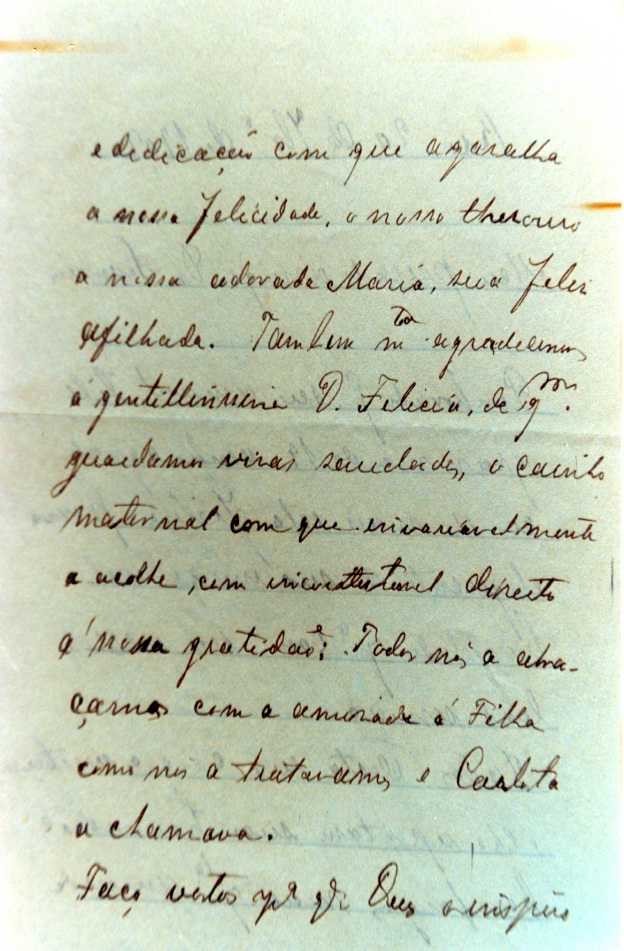 e dedicação com que agasalha
a nossa Felicidade, o nosso thesouro
a nossa adorada Maria, sua feliz
afilhada. Tambem mto agradecemos
a gentillissima D. Felicia, de qm.
guardamos vivas saudades, o carinho
maternal com que invariavelmente
a acolhe, com incontestavel direito
á nossa gratidão. Todos nós a abra-
çamos com a amisade á Filha
como nos a tratavamos e Carlota
a chamava.
Faço votos pa qe. Deus a inspire